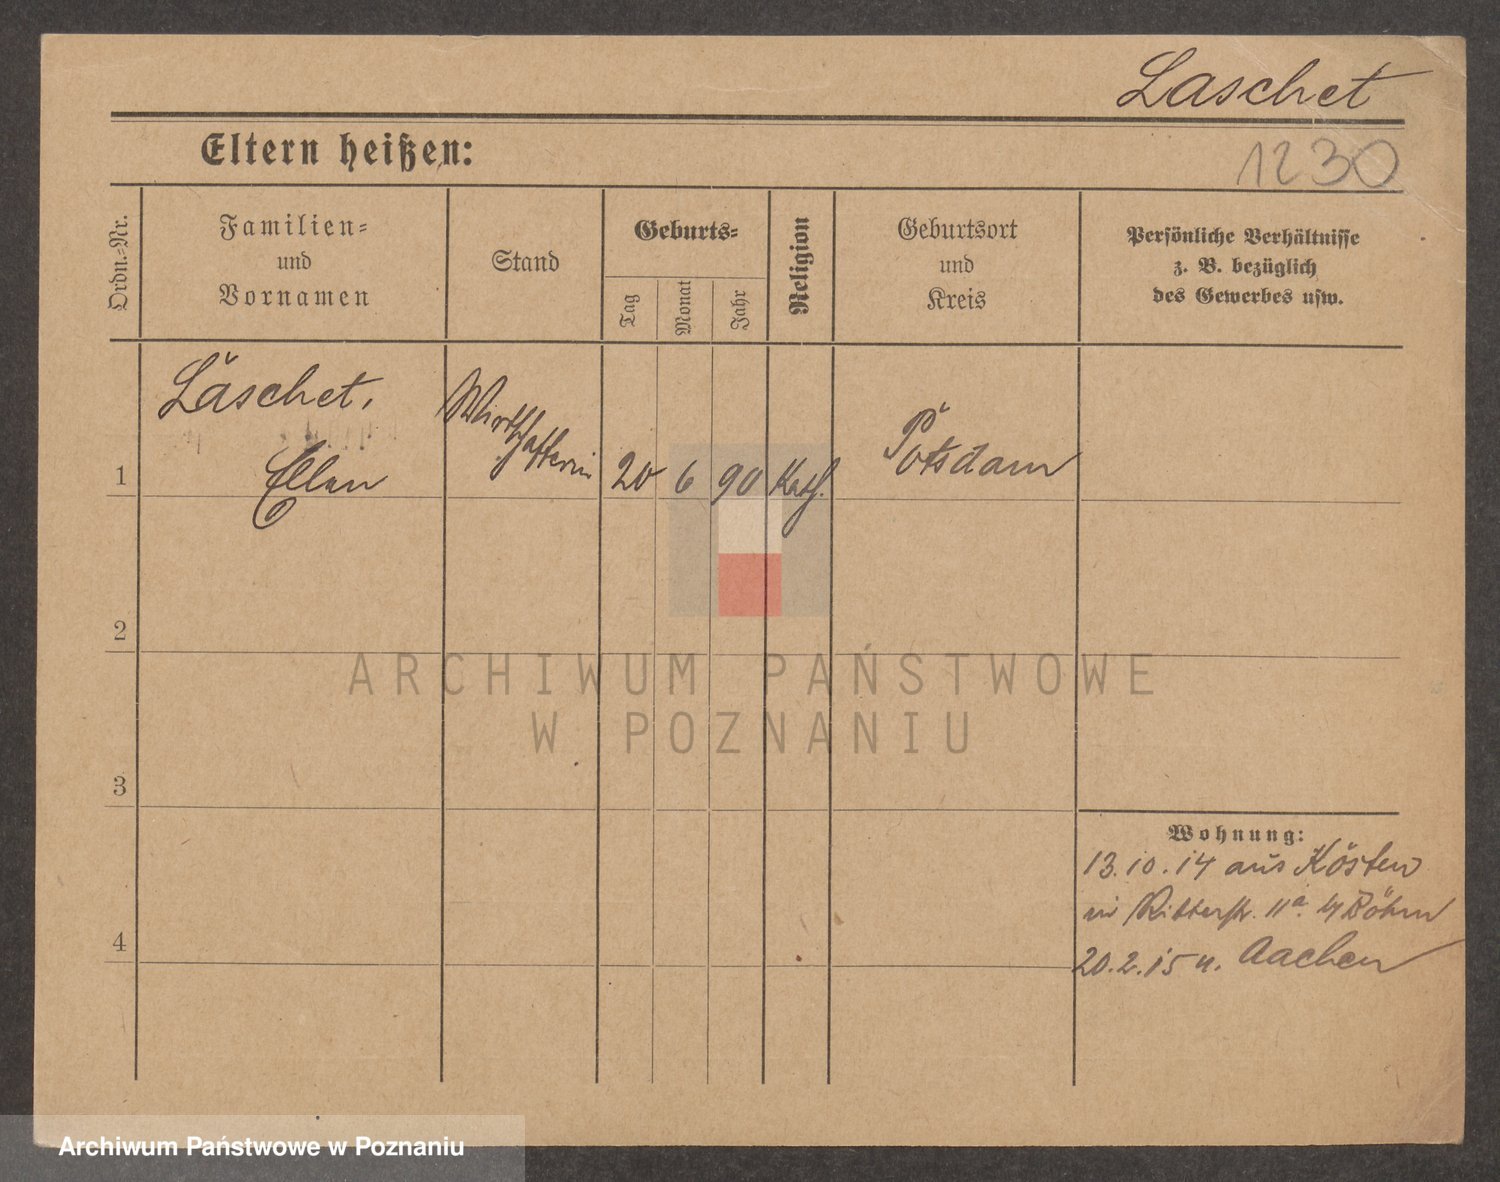 Laschet
Eltern heißen:
1230
Ordn.-Nr.
Familien-
und
Vornamen
Stand
Geburts-
Tag
Monat
Jahr
Religion
Geburtsort
und
Kreis
Persönliche Verhältnisse
z. B. bezüglich
des Gewerbes usw.
Laschet,
Ellen
1
20 6 90 Kath.
Potsdam
2
ARCHIWUM PAŃSTWOWE
W POZNANIU
3
4
Wohnung:
13.10.14 aus Kosten
Ritterstr. 11a Böhm
20.2.15 n. Aachen
Archiwum Państwowe w Poznaniu